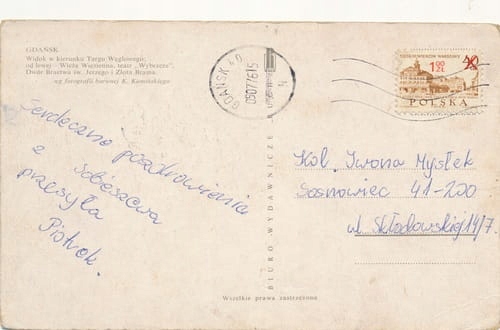 GDAŃSK
Widok w kierunku Targu Węglowego;
od lewej – Wieża Więzienna, teatr „Wybrzeże”.
Dwór Bractwa św. Jerzego i Złota Brama.
wg fotografii barwnej K. Kamińskiego
Serdeczne pozdrowienia
z Sobieszewa
przesyła
Piotrek.
BIURO WYDAWNICZE
GDAŃSK 40
POLSKA
1,50 ZŁ
Kol. Iwona Mysłek
Sosnowiec 41-200
ul. Skłodowskiej 14/7.
Wszelkie prawa zastrzeżone